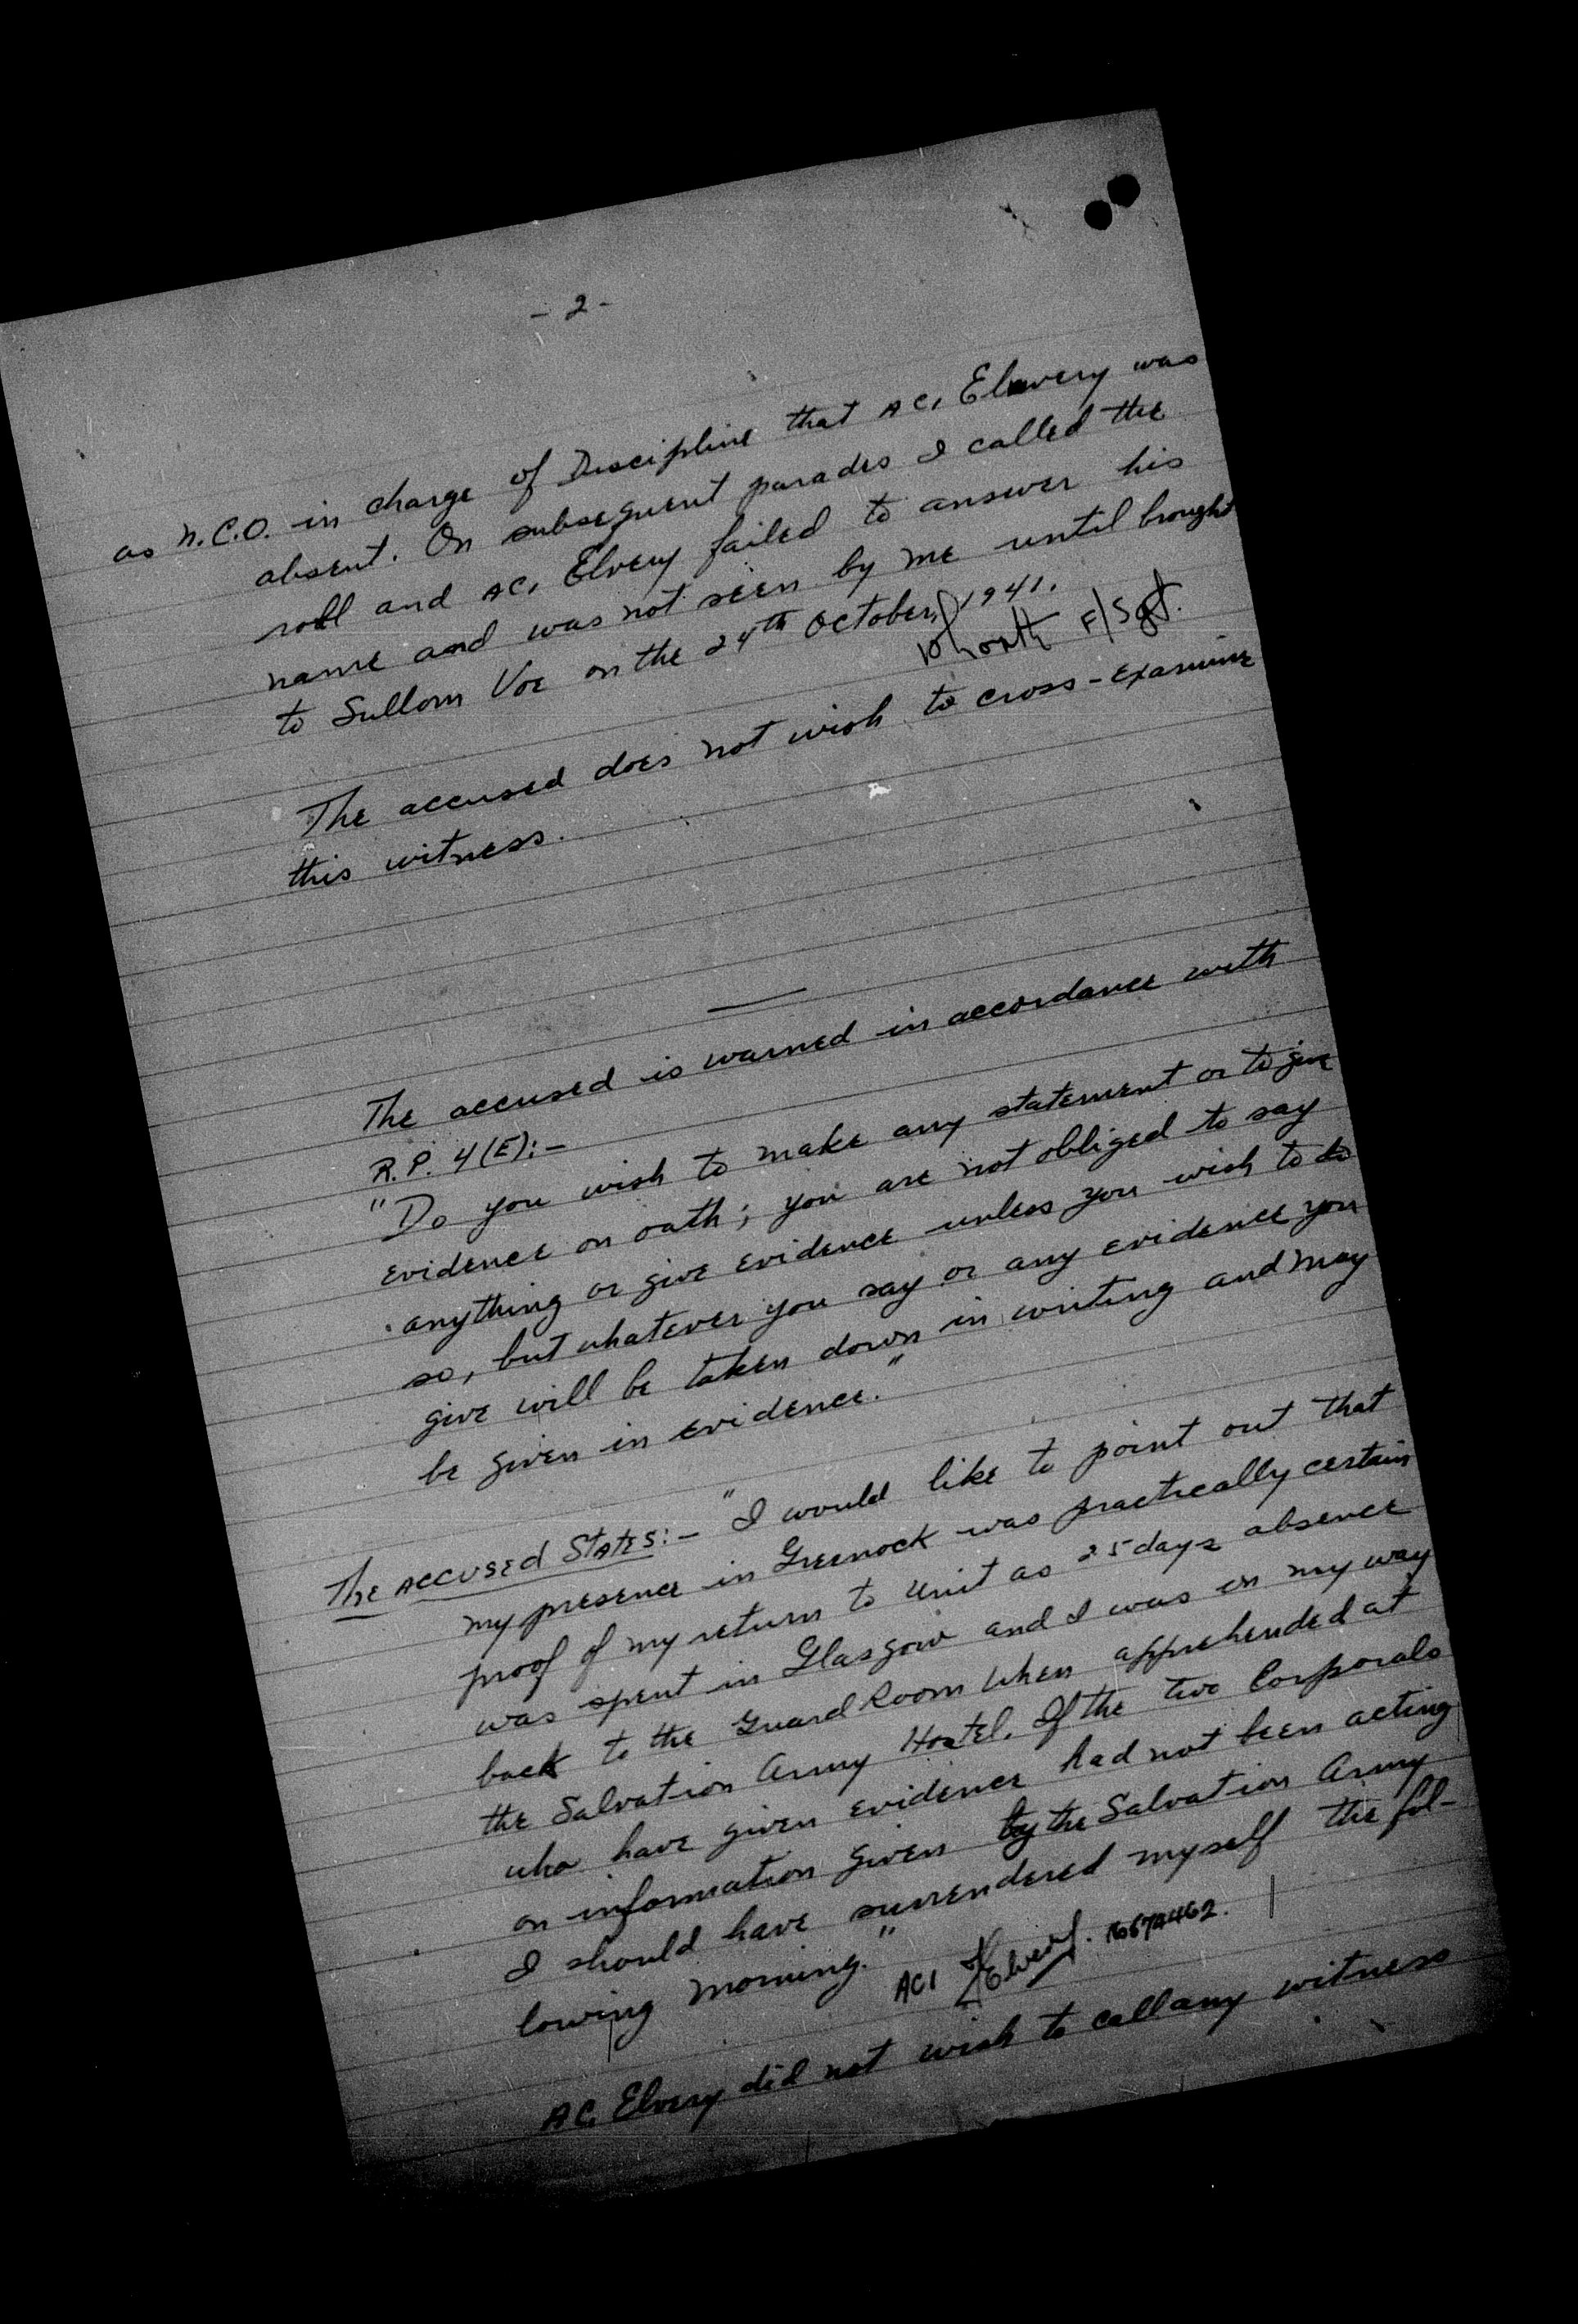 - 2 -
as N.C.O. in charge of Discipline that AC1 Elvery was
absent. On subsequent parades I called the
roll and AC1 Elvery failed to answer his
name and was not seen by me until brought
to Sullom Voe on the 24th October, 1941.
F/Sgt.
The accused does not wish to cross-examine
this witness.
The accused is warned in accordance with
R.P. 4(E):-
"Do you wish to make any statement or to give
evidence on oath; you are not obliged to say
anything or give evidence unless you wish to do
so, but whatever you say or any evidence you
give will be taken down in writing and may
be given in evidence."
The Accused States:- "I would like to point out that
my presence in Greenock was practically certain
proof of my return to Unit as 25 days absence
was spent in Glasgow and I was on my way
back to the Guard Room when apprehended at
the Salvation Army Hostel. If the two Corporals
who have given evidence had not been acting
on information given by the Salvation Army
I should have surrendered myself the fol-
lowing morning."
AC1 Elvery.
AC1 Elvery did not wish to call any witness